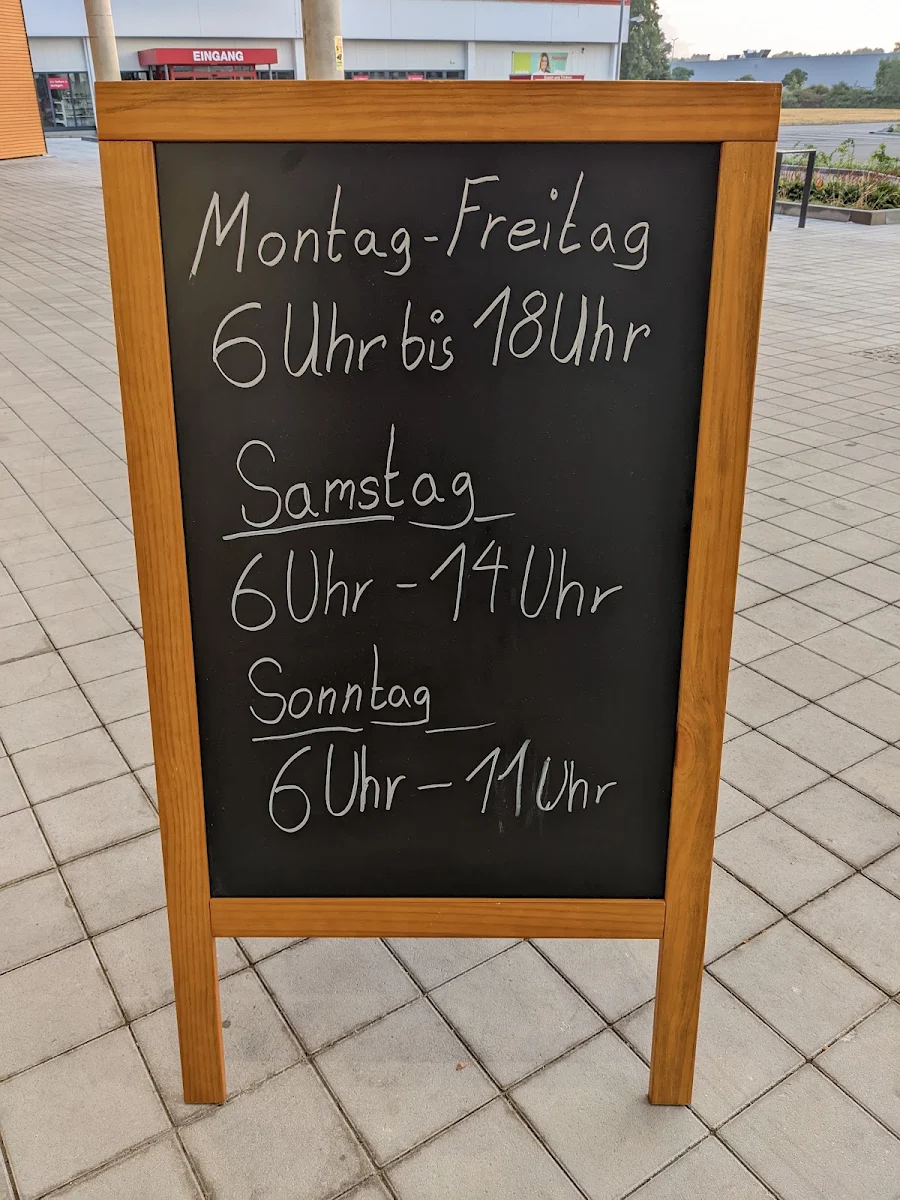 EINGANG
Montag-Freitag
6 Uhr bis 18 Uhr
Samstag
6 Uhr - 14 Uhr
Sonntag
6 Uhr - 11 Uhr